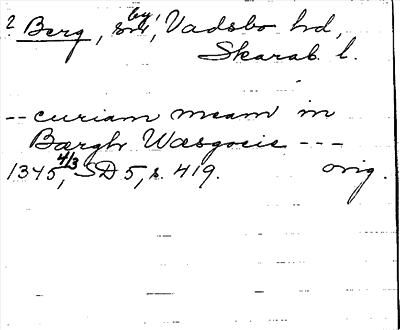 ? Berg, by, Vadsbo hd,
Skarab. l.
-- curiam meam in
Bærgh Wæsgocie ---
1345 4/3, SD 5, s. 419. orig.